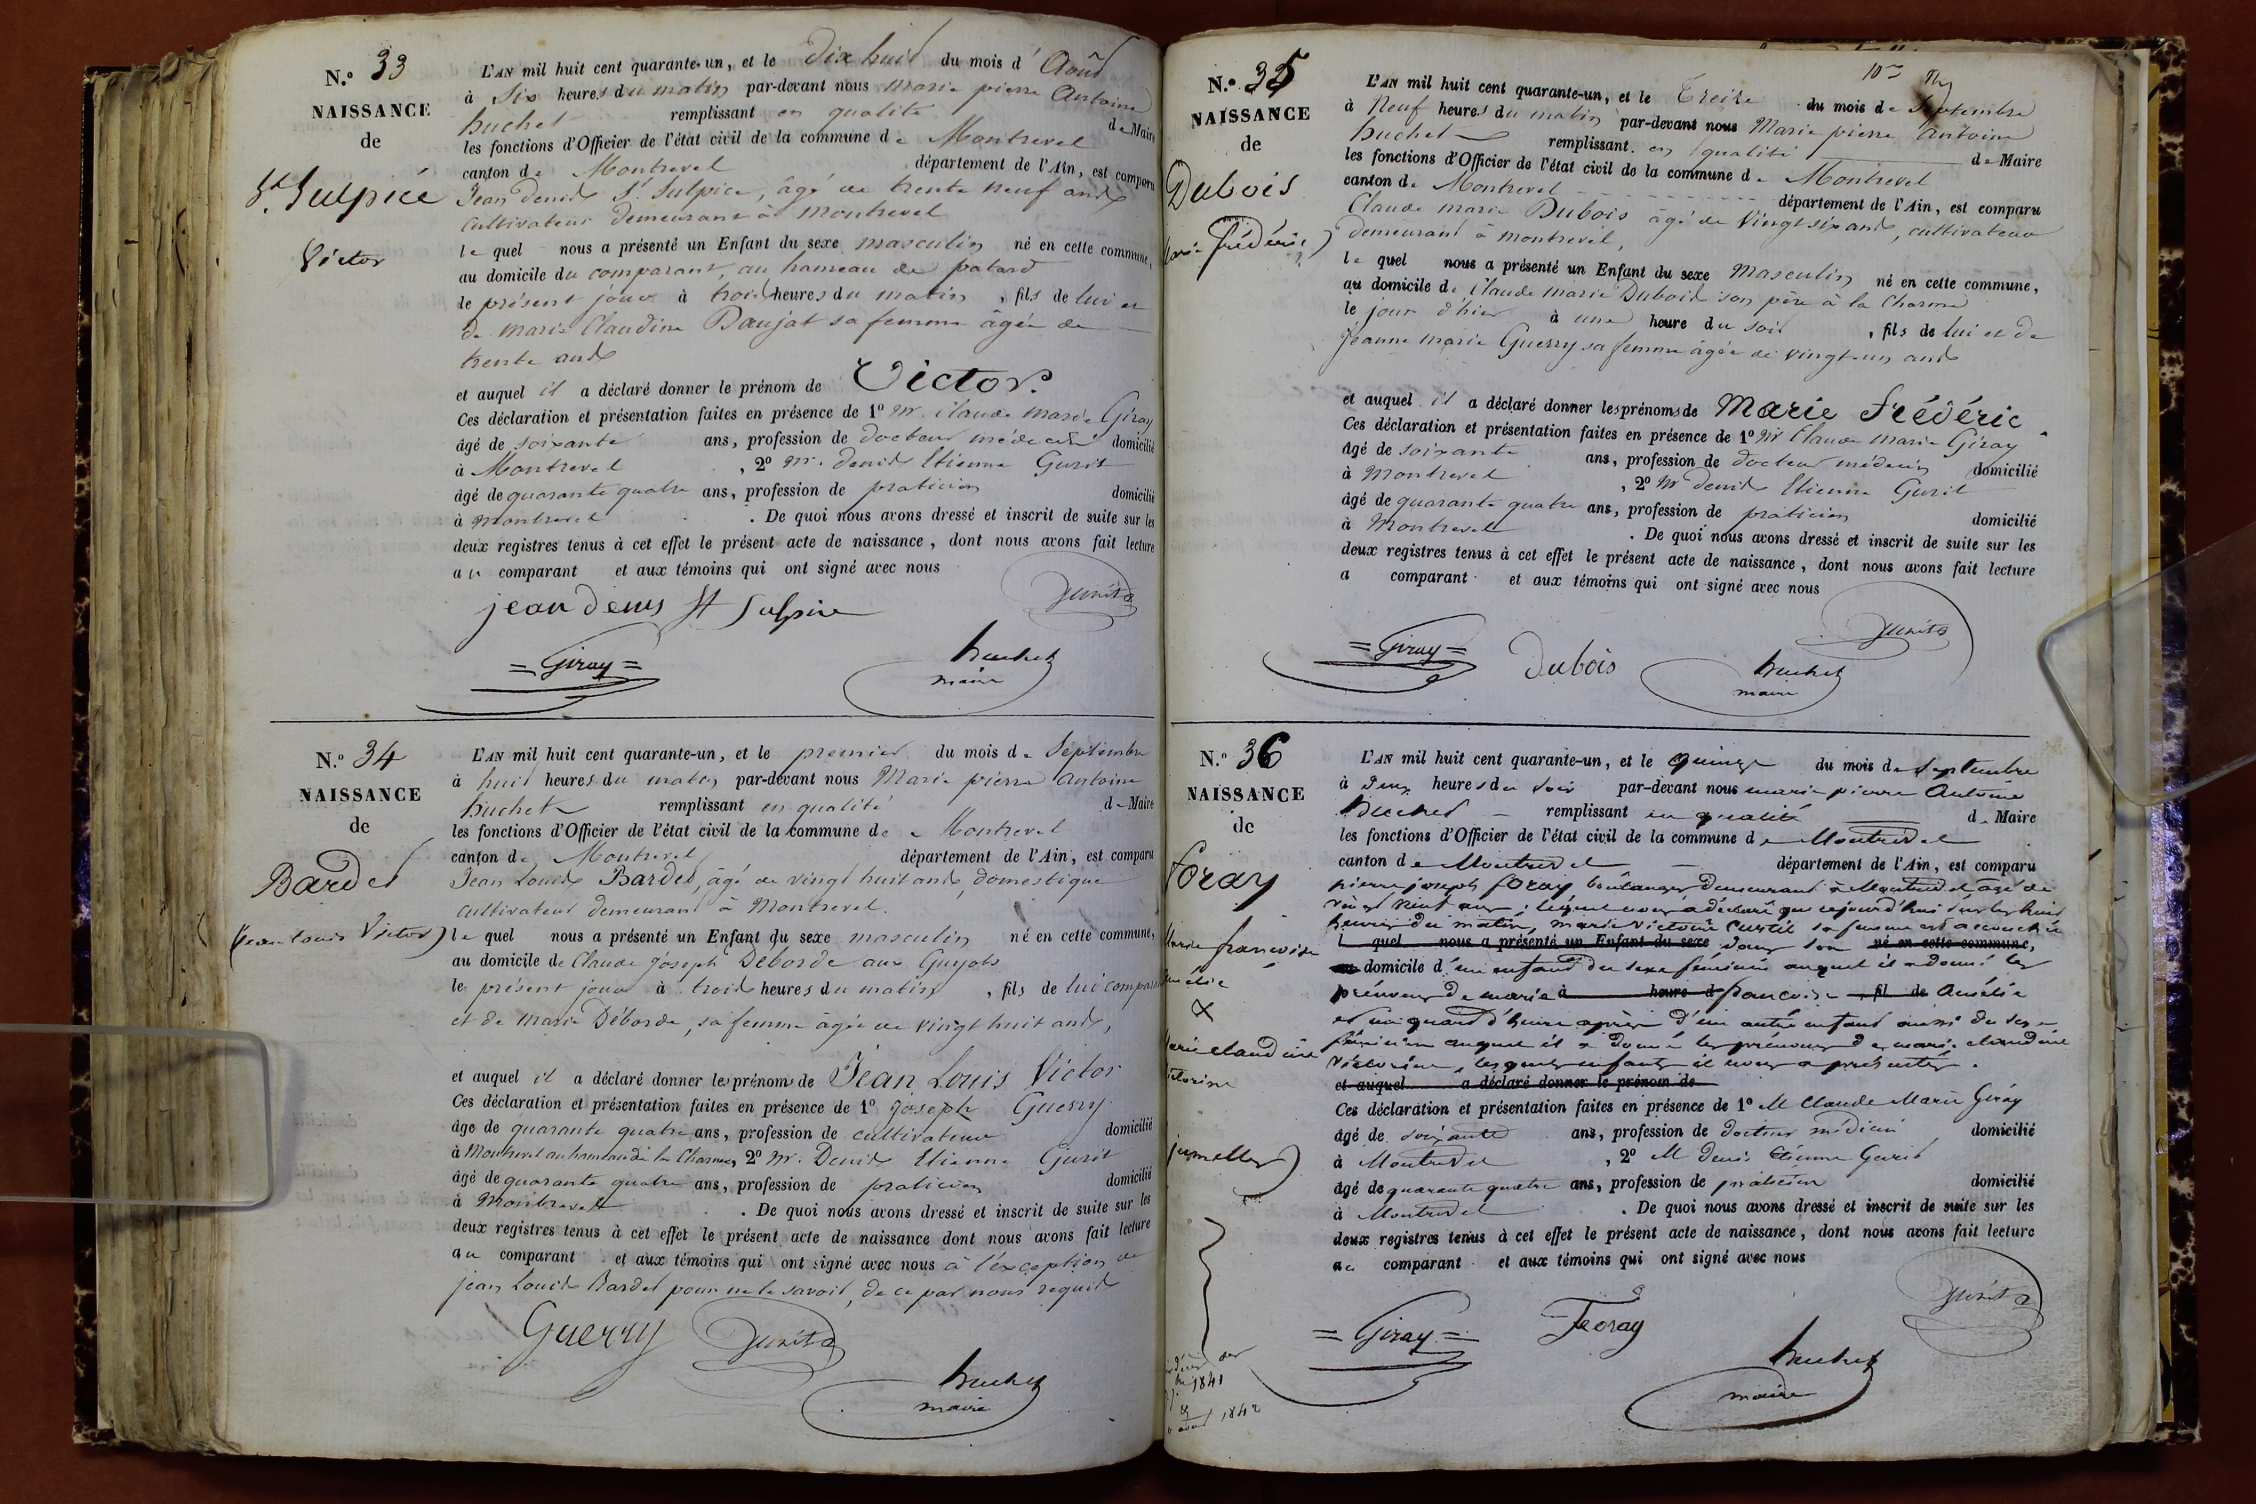 N.º 33
NAISSANCE
de
St. Sulpice
Victor
L'AN mil huit cent quarante-un, et le Dix huit du mois d' Août
à six heures du matin par-devant nous Marie pierre Antoine
huchet remplissant en qualité de Maire
les fonctions d'Officier de l'état civil de la commune de Montrevel
canton de Montrevel département de l'Ain, est comparu
Jean Denis St Sulpice, âgé de trente neuf ans
cultivateur demeurant à Montrevel
le quel nous a présenté un Enfant du sexe masculin né en cette commune,
au domicile du comparant, au hameau de
le présent jour à trois heures du matin, fils de lui et
de Marie Claudine Baujat sa femme âgée de
trente ans
et auquel il a déclaré donner le prénom de Victor.
Ces déclaration et présentation faites en présence de 1º Mr. Claude Marie Giray
âgé de soixante ans, profession de docteur médecin domicilié
à Montrevel, 2º Mr. Denis Etienne Gurit
âgé de quarante quatre ans, profession de praticien domicilié
à Montrevel. De quoi nous avons dressé et inscrit de suite sur les
deux registres tenus à cet effet le présent acte de naissance, dont nous avons fait lecture
au comparant et aux témoins qui ont signé avec nous
jean denis St Sulpice
= Giray =
huchet
maire
N.º 34
NAISSANCE
de
Bardet
(jean Louis Victor)
L'AN mil huit cent quarante-un, et le premier du mois de Septembre
à huit heures du matin par-devant nous Marie pierre Antoine
huchet remplissant en qualité de Maire
les fonctions d'Officier de l'état civil de la commune de Montrevel
canton de Montrevel département de l'Ain, est comparu
Jean Louis Bardet, âgé de vingt huit ans, domestique
cultivateur demeurant à Montrevel.
le quel nous a présenté un Enfant du sexe masculin né en cette commune,
au domicile de Claude Joseph Deborde aux Guyots
le présent jour à trois heures du matin, fils de lui comparant
et de Marie Déborde, sa femme âgée de vingt huit ans,
et auquel il a déclaré donner les prénoms de Jean Louis Victor
Ces déclaration et présentation faites en présence de 1º Joseph Guerry
âgé de quarante quatre ans, profession de cultivateur domicilié
à Montrevel au hameau de la Charme, 2º Mr. Denis Etienne Gurit
âgé de quarante quatre ans, profession de praticien domicilié
à Montrevel. De quoi nous avons dressé et inscrit de suite sur les
deux registres tenus à cet effet le présent acte de naissance dont nous avons fait lecture
au comparant et aux témoins qui ont signé avec nous à l'exception de
jean Louis Bardet pour ne le savoir, de ce par nous requis
Guerry
huchet
maire
N.º 35
NAISSANCE
de
Dubois
Marie frédéric)
L'AN mil huit cent quarante-un, et le Treize du mois de Septembre
à Neuf heures du matin par-devant nous Marie pierre Antoine
huchet remplissant en qualité de Maire
les fonctions d'Officier de l'état civil de la commune de Montrevel
canton de Montrevel département de l'Ain, est comparu
Claude marie Dubois âgé de Vingt six ans, cultivateur
demeurant à montrevel,
le quel nous a présenté un Enfant du sexe Masculin né en cette commune,
au domicile de Claude marie Dubois son père à la Charme
le jour d'hier à une heure du soir, fils de lui et de
Jeanne marie Guerry sa femme âgée de vingt-un ans
et auquel il a déclaré donner les prénoms de Marie frédéric.
Ces déclaration et présentation faites en présence de 1º Mr Claude Marie Giray
âgé de soixante ans, profession de docteur médecin domicilié
à Montrevel, 2º Mr denis Etienne Gurit
âgé de quarante quatre ans, profession de praticien domicilié
à Montrevel. De quoi nous avons dressé et inscrit de suite sur les
deux registres tenus à cet effet le présent acte de naissance, dont nous avons fait lecture
a comparant et aux témoins qui ont signé avec nous
= Giray =
Dubois
huchet
maire
N.º 36
NAISSANCE
de
foray
Marie françoise
Amélie
&
Marie claudine
Victorine
jumelles)
1841
1842
L'AN mil huit cent quarante-un, et le quinze du mois de Septembre
à Deux heures du soir par-devant nous marie pierre Antoine
huchet remplissant en qualité de Maire
les fonctions d'Officier de l'état civil de la commune de Montrevel
canton de Montrevel département de l'Ain, est comparu
pierre joseph foray boulanger demeurant à Montrevel âgé de
vingt neuf ans; lequel nous a déclaré que cejourd'hui sur les huit
heures du matin, marie Victoire Curtil sa femme est accouchée
le quel nous a présenté un Enfant du sexe dans son né en cette commune,
domicile d'un enfant du sexe féminin auquel il a donné les
prénoms de marie à heure d françoise fil de Amélie
et un quart d'heure après d'un autre enfant aussi du sexe
féminin auquel il a donné les prénoms de marie claudine
Victorine, lesquels enfants il nous a présentés.
et auquel a déclaré donner le prénom de
Ces déclaration et présentation faites en présence de 1º M Claude Marie Giray
âgé de soixante ans, profession de docteur médecin domicilié
à Montrevel, 2º M denis Etienne Gurit
âgé de quarante quatre ans, profession de praticien domicilié
à Montrevel. De quoi nous avons dressé et inscrit de suite sur les
deux registres tenus à cet effet le présent acte de naissance, dont nous avons fait lecture
au comparant et aux témoins qui ont signé avec nous
= Giray =
Foray
huchet
maire